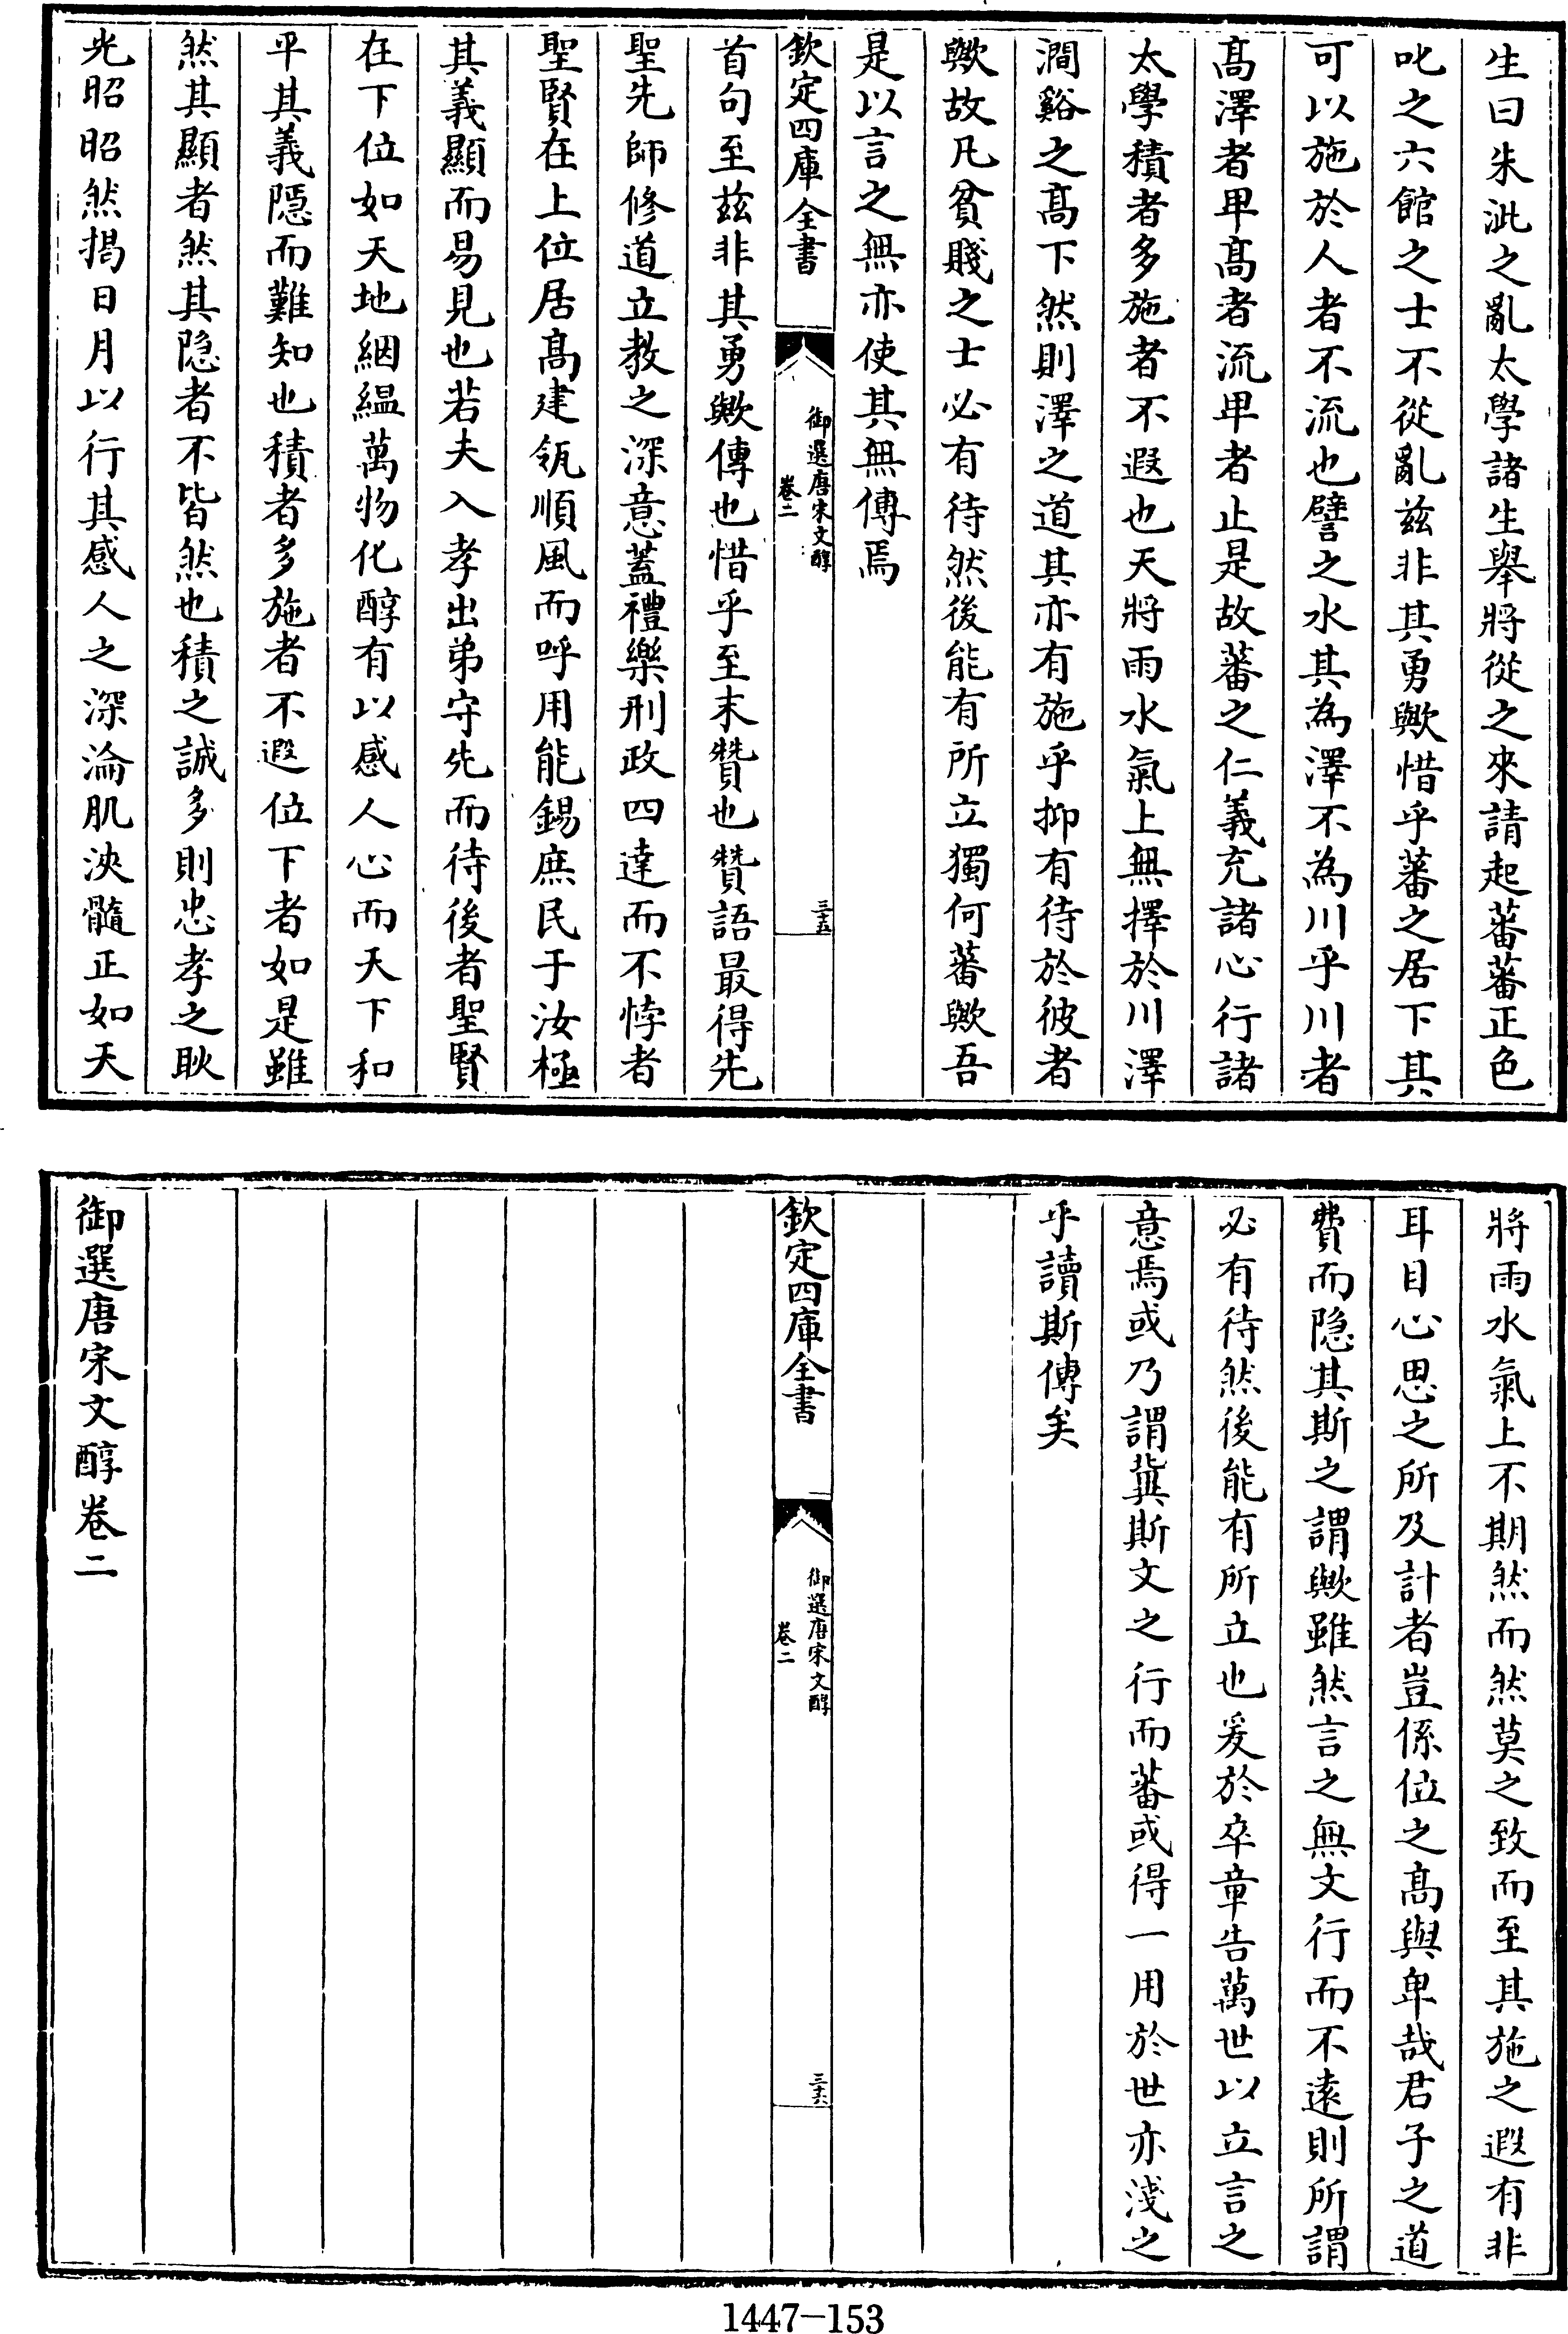 生曰朱泚之亂太學諸生舉將從之來請起蕃蕃正色
叱之六館之士不從亂兹非其勇歟惜乎蕃之居下其
可以施於人者不流也譬之水其為澤不為川乎川者
髙澤者卑髙者流卑者止是故蕃之仁義充諸心行諸
太學積者多施者不遐也天將雨水氣上無擇於川澤
澗谿之髙下然則澤之道其亦有施乎抑有待於彼者
歟故凡貧賤之士必有待然後能有所立獨何蕃歟吾
是以言之無亦使其無傳焉
欽定四庫全書
御選唐宋文醇
卷二
三十五
首句至兹非其勇歟傳也惜乎至末贊也贊語最得先
聖先師修道立教之深意蓋禮樂刑政四達而不悖者
聖賢在上位居髙建瓴順風而呼用能錫庶民于汝極
其義顯而易見也若夫入孝出弟守先而待後者聖賢
在下位如天地絪緼萬物化醇有以感人心而天下和
平其義隱而難知也積者多施者不遐位下者如是雖
然其顯者然其隐者不皆然也積之誠多則忠孝之耿
光昭昭然揭日月以行其感人之深淪肌浹髓正如天
將雨水氣上不期然而然莫之致而至其施之遐有非
耳目心思之所及計者豈係位之髙與卑哉君子之道
費而隐其斯之謂歟雖然言之無文行而不遠則所謂
必有待然後能有所立也爰於卒章告萬世以立言之
意焉或乃謂冀斯文之行而蕃或得一用於世亦淺之
乎讀斯傳矣
欽定四庫全書
御選唐宋文醇
卷二
三十六
御選唐宋文醇卷二
1447-153